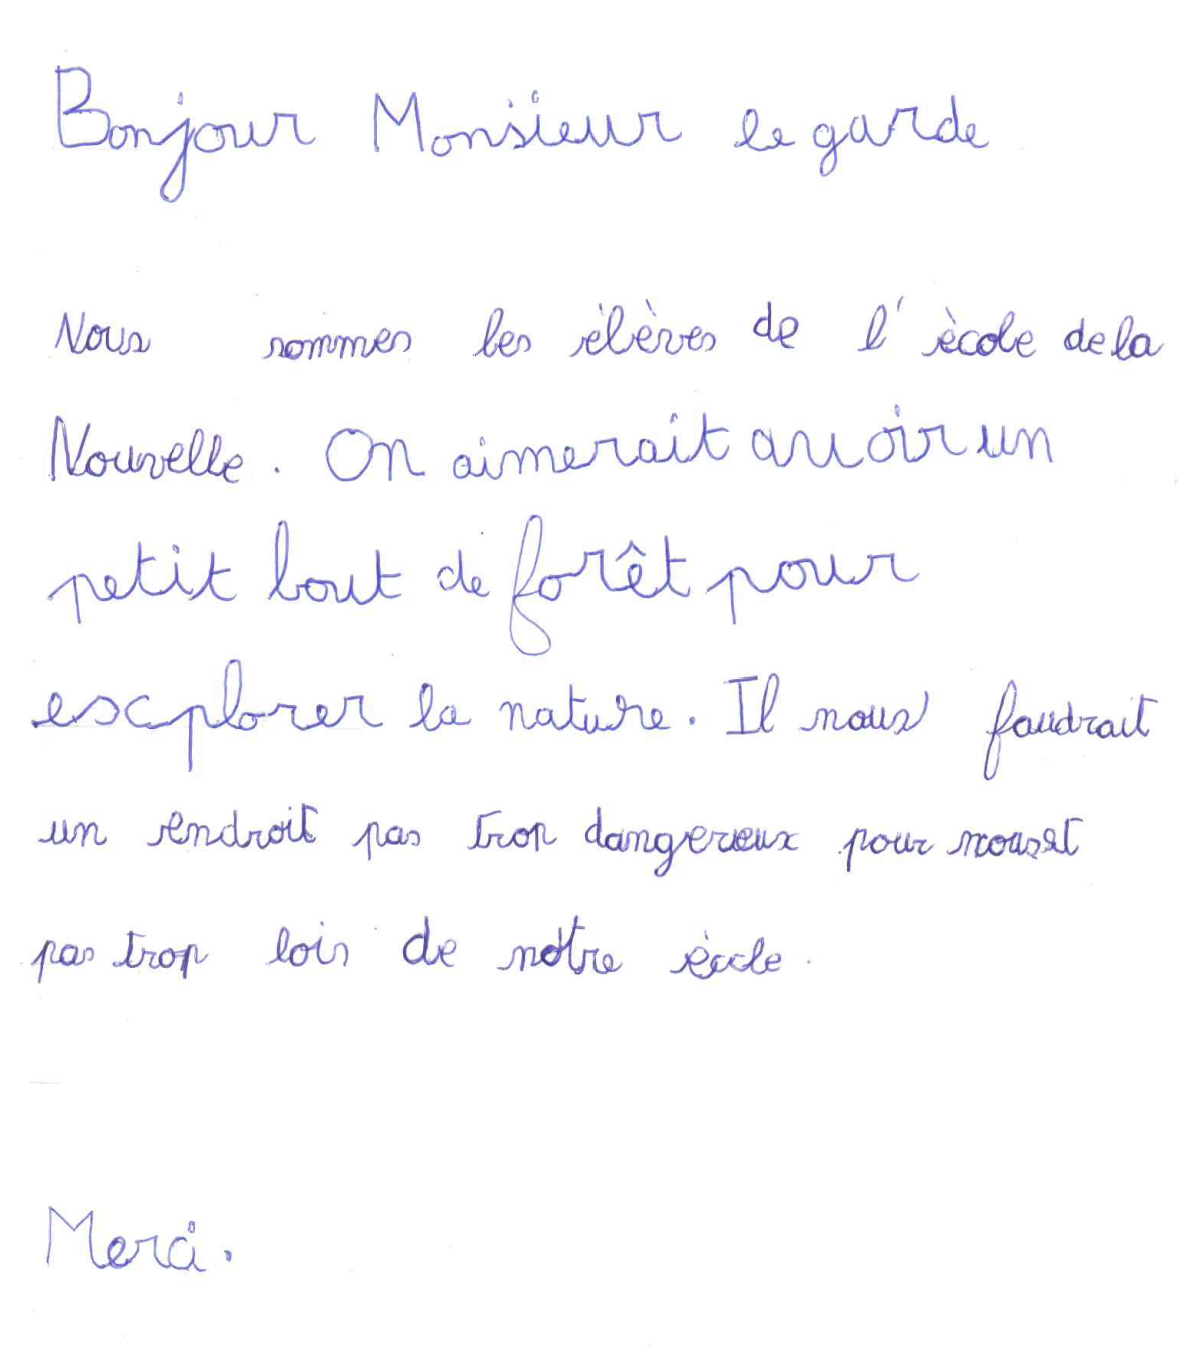 Bonjour Monsieur le garde
Nous sommes les élèves de l'école de la
Nouvelle. On aimerait avoir un
petit bout de forêt pour
explorer la nature. Il nous faudrait
un endroit pas trop dangereux pour nous et
pas trop loin de notre école.
Merci.